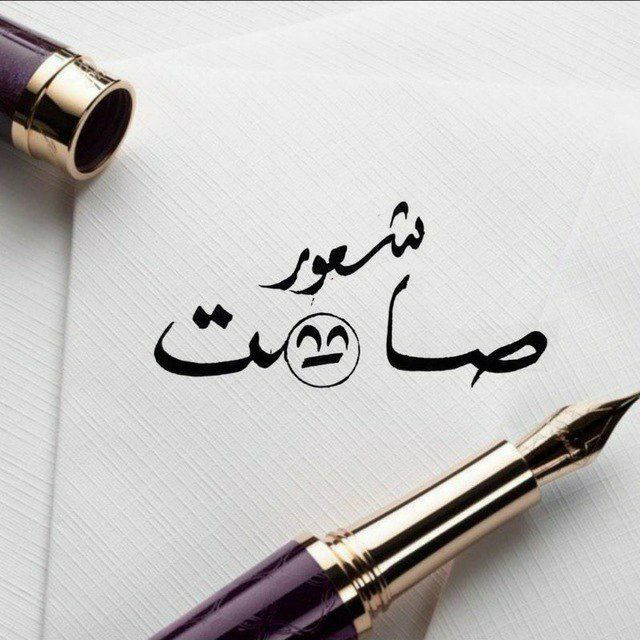 شعور
صامت